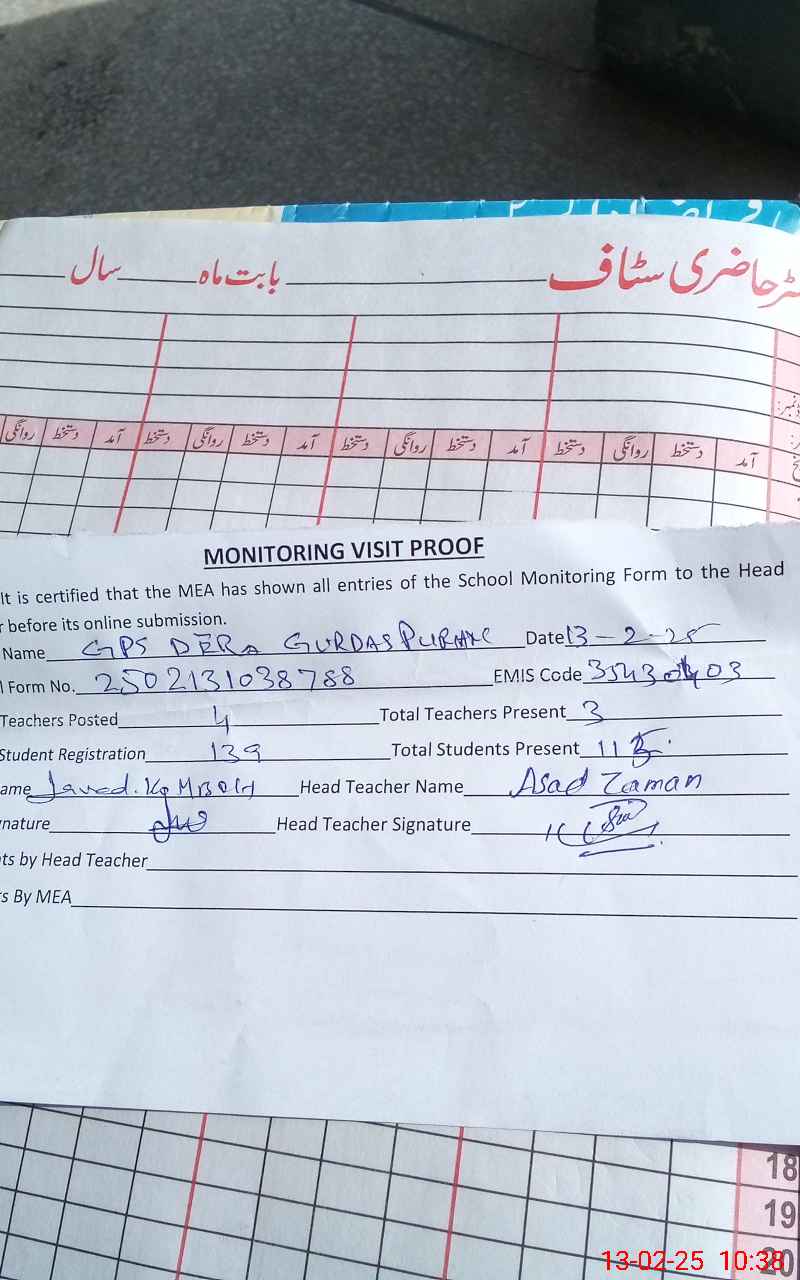 ٹر حاضری سٹاف ___ بابت ماہ ___ سال ___
آمد دستخط روانگی دستخط آمد دستخط روانگی دستخط آمد دستخط روانگی دستخط آمد دستخط روانگی
MONITORING VISIT PROOF
It is certified that the MEA has shown all entries of the School Monitoring Form to the Head
r before its online submission.
Name GPS DERA GURDASPURIAN Date 13-2-25
l Form No. 2502131038788 EMIS Code
Teachers Posted 4 Total Teachers Present 3
Student Registration 139 Total Students Present
ame Javed Head Teacher Name Asad Zaman
nature Head Teacher Signature
ts by Head Teacher
s By MEA
18
19
20
13-02-25 10:38